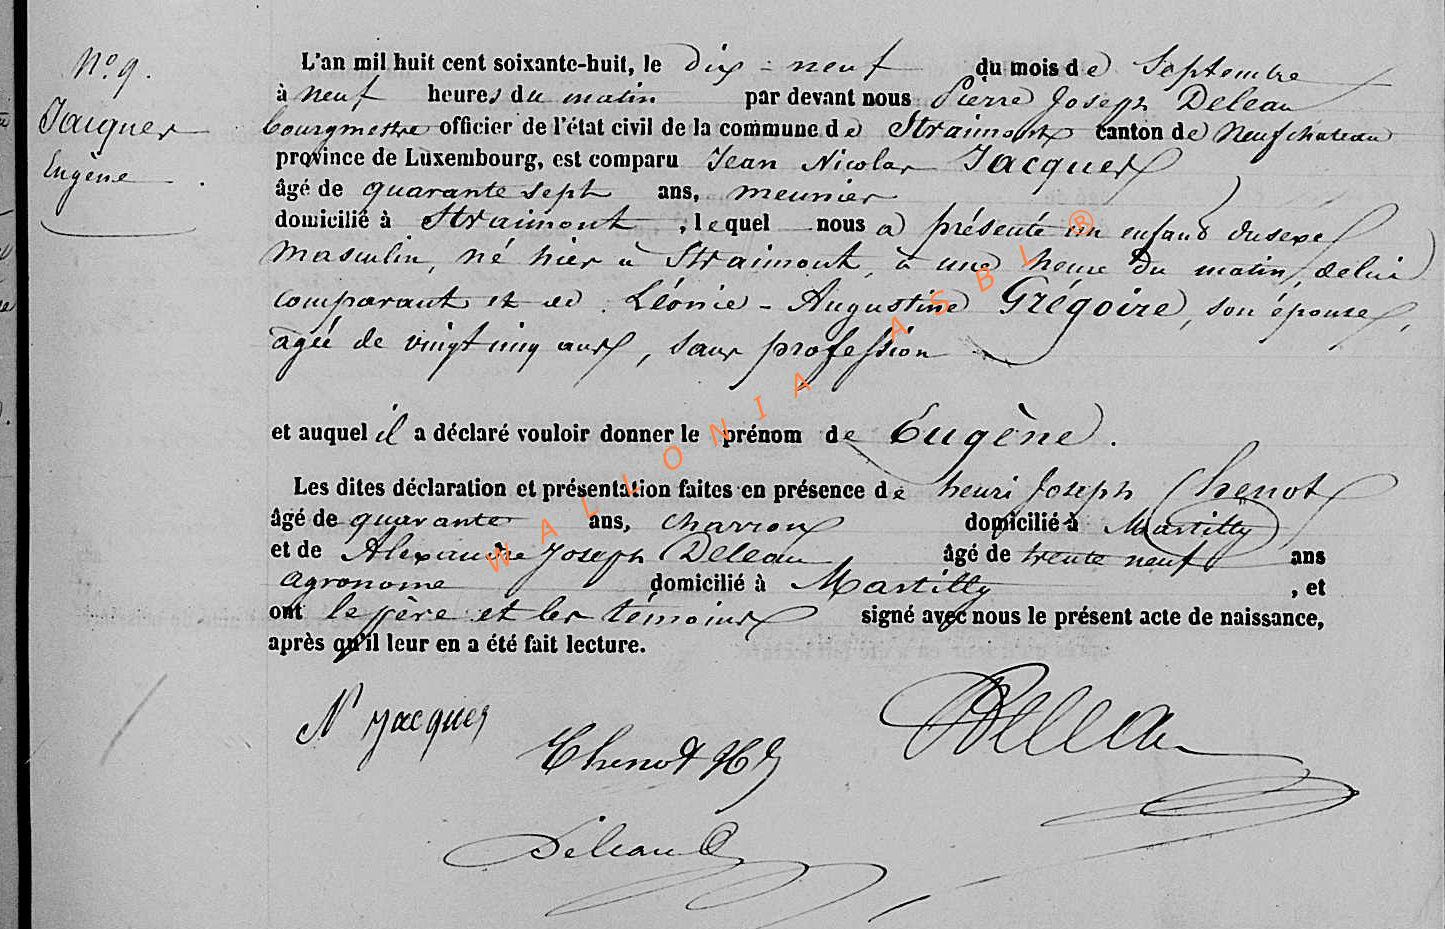 N.º 9.
Jacques
Eugène
L'an mil huit cent soixante-huit, le dix-neuf du mois de Septembre
à neuf heures du matin par devant nous Pierre Joseph Deleau
bourgmestre officier de l'état civil de la commune de Straimont canton de Neufchateau
province de Luxembourg, est comparu Jean Nicolas Jacques
âgé de quarante sept ans, meunier
domicilié à Straimont, lequel nous a présenté un enfant du sexe
masculin, né hier à Straimont, à une heure du matin, de lui
comparant et de Léonie-Augustine Grégoire, son épouse,
agée de vingt cinq ans, sans profession
et auquel il a déclaré vouloir donner le prénom de Eugène.
Les dites déclaration et présentation faites en présence de henri Joseph Chenot
âgé de quarante ans, charron domicilié à Martilly
et de Alexandre Joseph Deleau âgé de trente neuf ans
agronome domicilié à Martilly, et
ont le père et les témoins signé avec nous le présent acte de naissance,
après qu'il leur en a été fait lecture.
N Jacques
Chenot
Deleau
Deleau
WALLONIA ASBL ®